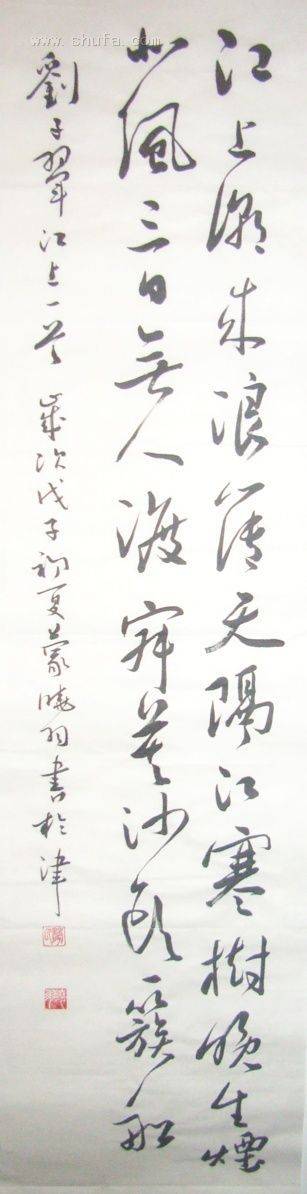 www.shufa.com
江上潮來浪薄天隔江寒樹晚生煙
北風三日無人渡寂寞沙頭一簇船
劉子翬江上一首 歲次戊子初夏蒙曉羽書於津